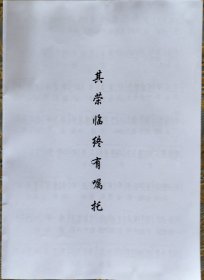 其荣临终有嘱托